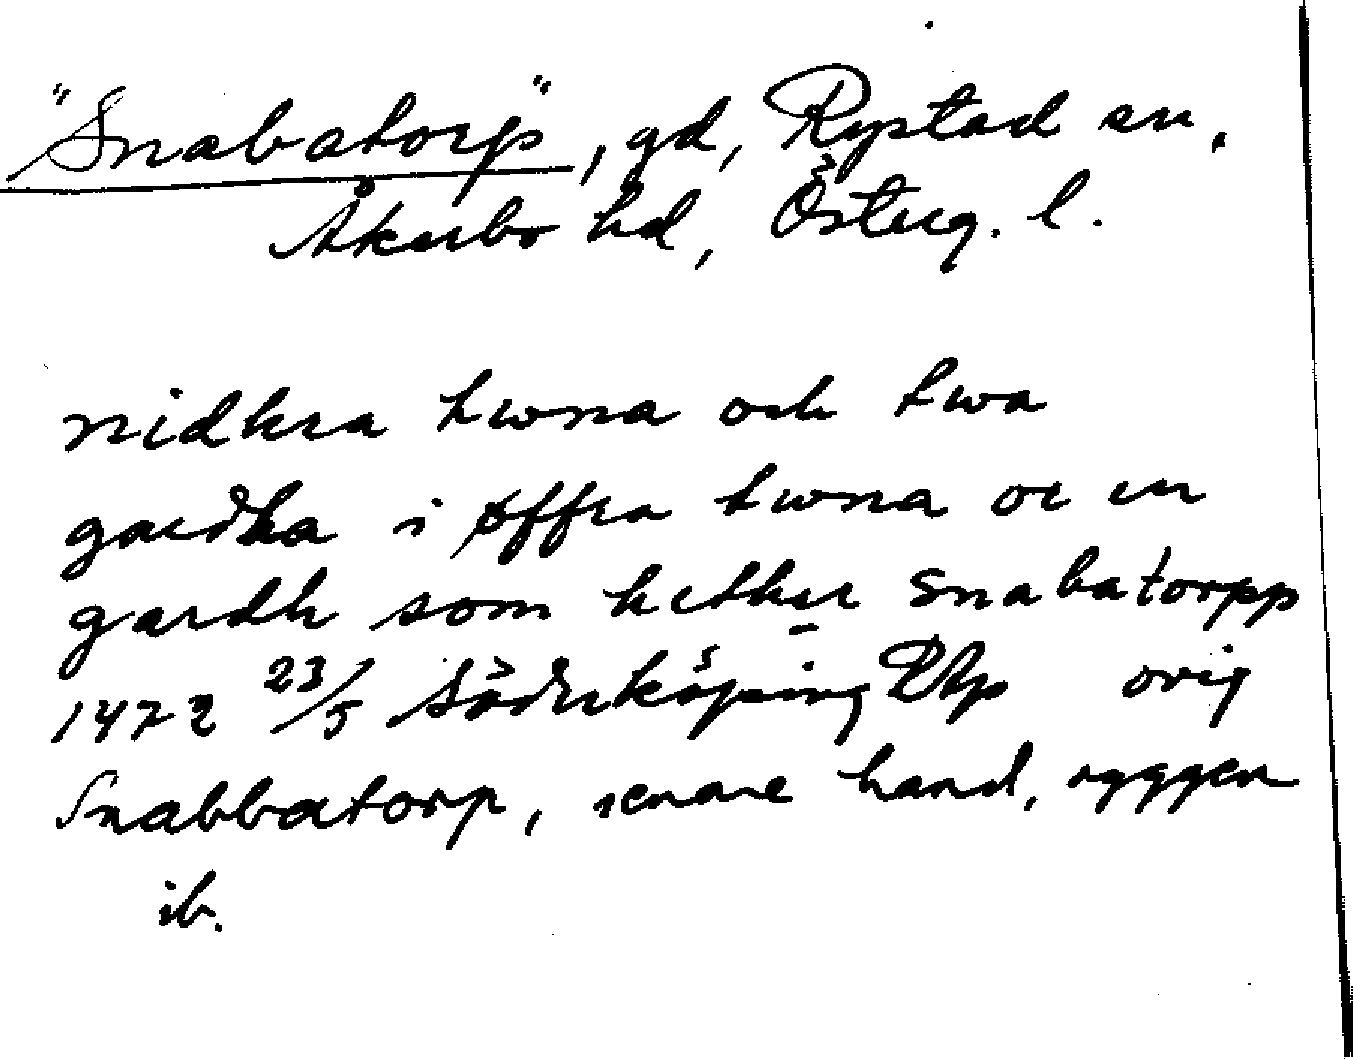 "Snabatorp", gd, Rystad sn.
Åkerbo hd, Österg. l.
nidhra twna och twa
gardha i øffra twna oc en
gardh som hether snabatorpp
1472 23/5 Söderköping RAp orig
Snabbatorp, senare hand, ryggen
ib.